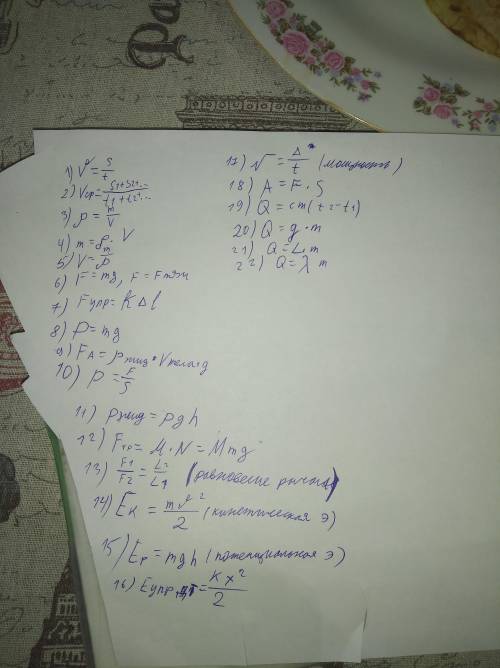 Par
1) V = S/t
2) Vср = S1+S2+.../t1+t2+...
3) ρ = m/V
4) m = ρ · V
5) V = m/ρ
6) F = mg, F = Fтяж
7) Fупр = K Δ l
8) P = mg
9) FA = ρжид · Vтела · g
10) P = F/S
11) Pжид = ρgh
12) Fтр = M · N = Mmg
13) F1/F2 = L2/L1 (равновесие рычага)
14) Eк = mV²/2 (кинетическая Э)
15) Ep = mgh (потенциальная Э)
16) Eупр = Kx²/2
17) N = A/t (мощность)
18) A = F · S
19) Q = cm(t2-t1)
20) Q = g · m
21) Q = L · m
22) Q = λ m